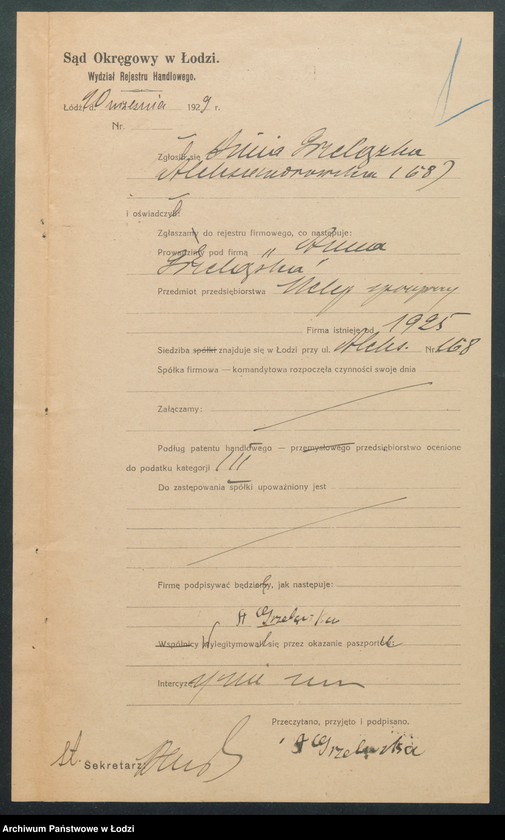 Sąd Okręgowy w Łodzi.
Wydział Rejestru Handlowego.
Łódź, d. 20 września 1929 r.
Nr.
Zgłosił się Anna Grzelązka
Aleksandrowska 168)
i oświadczył:
Zgłaszam do rejestru firmowego, co następuje:
Prowadzimy pod firmą „Anna
Grzelązka"
Przedmiot przedsiębiorstwa sklep spożywczy
Firma istnieje od 1925
Siedziba spółki znajduje się w Łodzi przy ul. Aleks. Nr. 168
Spółka firmowa — komandytowa rozpoczęła czynności swoje dnia
Załączamy:
Podług patentu handlowego — przemysłowego przedsiębiorstwo ocenione
do podatku kategorji III
Do zastępowania spółki upoważniony jest
Firmę podpisywać będzie, jak następuje:
A Grzelązka
Wspólnicy wylegitymował się przez okazanie paszportu:
Intercyzy nie
Przeczytano, przyjęto i podpisano.
A Grzelązka
st. Sekretarz
Archiwum Państwowe w Łodzi